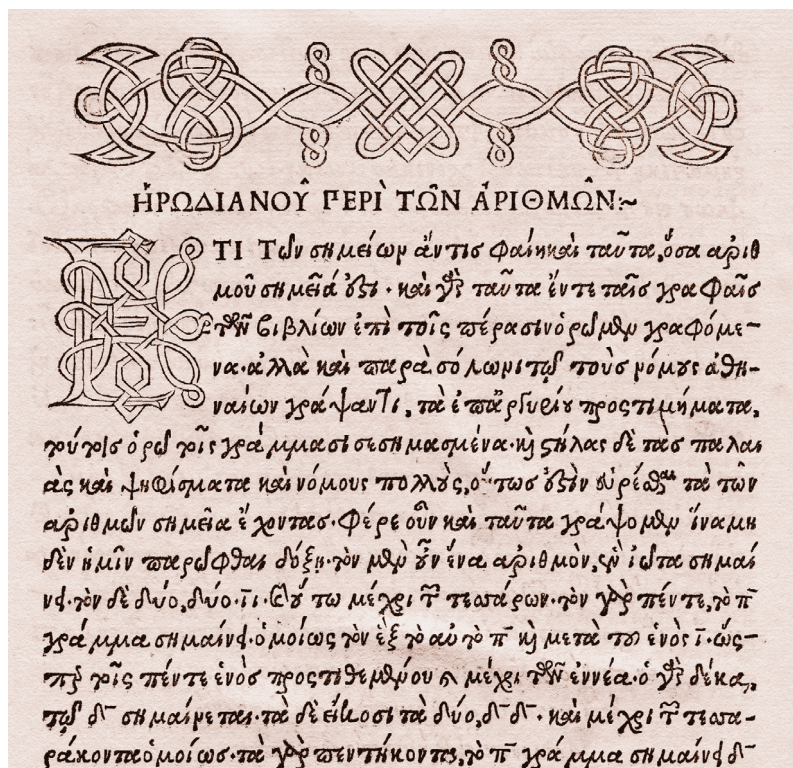 ἩΡΩΔΙΑΝΟΥ͂ ΠΕΡῚ ΤΩ͂Ν ἈΡΙΘΜΩ͂Ν:~
ΤΙ Τῶν σημείων ἄντις φαίη καὶ ταῦτα, ὅσα ἀριθ
μοῦ σημεῖά ἐστι· καὶ γὰρ ταῦτα ἔν τε ταῖς γραφαῖς
τῶν βιβλίων ἐπὶ τοῖς πέρασιν ὁρῶμεν γραφόμε-
να· ἀλλὰ καὶ παρὰ σόλωνι τῷ τοὺς νόμους ἀθη-
ναίων γράψαντι, τὰ ἐπ' ἀργυρίῳ προςτιμήματα,
τούτοις ὁρῶ τοῖς γράμμασι σεσημασμένα· καὶ στήλας δὲ τὰς παλαι
ὰς καὶ ψηφίσματα καὶ νόμους πολλοὺς, οὕτως ἐστὶν εὑρέσθαι τὰ τῶν
ἀριθμῶν σημεῖα ἔχοντας· Φέρε οὖν καὶ ταῦτα γράψομεν ἵνα μη
δὲν ἡμῖν παρῶφθαι δόξῃ· τὸν μὲν οὖν ἕνα ἀριθμὸν, ἓν ἰῶτα σημαί
νει· τὸν δὲ δύο, δύο· ῑῑ· Οὕτω μέχρι τῶν τεσσάρων· τὸν γὰρ πέντε, τὸ π̄
γράμμα σημαίνει· ὁμοίως τὸν ἓξ τὸ αὐτὸ π̄ καὶ μετὰ τοῦ ἑνὸς ῑ· ὥς-
περ τοῖς πέντε ἑνὸς προςτιθεμένου καὶ μέχρι τῶν ἐννέα· ὁ γὰρ δέκα,
τῷ δ̄ σημαίνεται· τὰ δὲ εἴκοσι τὰ δύο, δ̄ δ̄· καὶ μέχρι τῶν τεσσα-
ράκοντα ὁμοίως· τὰ γὰρ πεντήκοντα, τὸ π̄ γράμμα σημαίνει δ̄